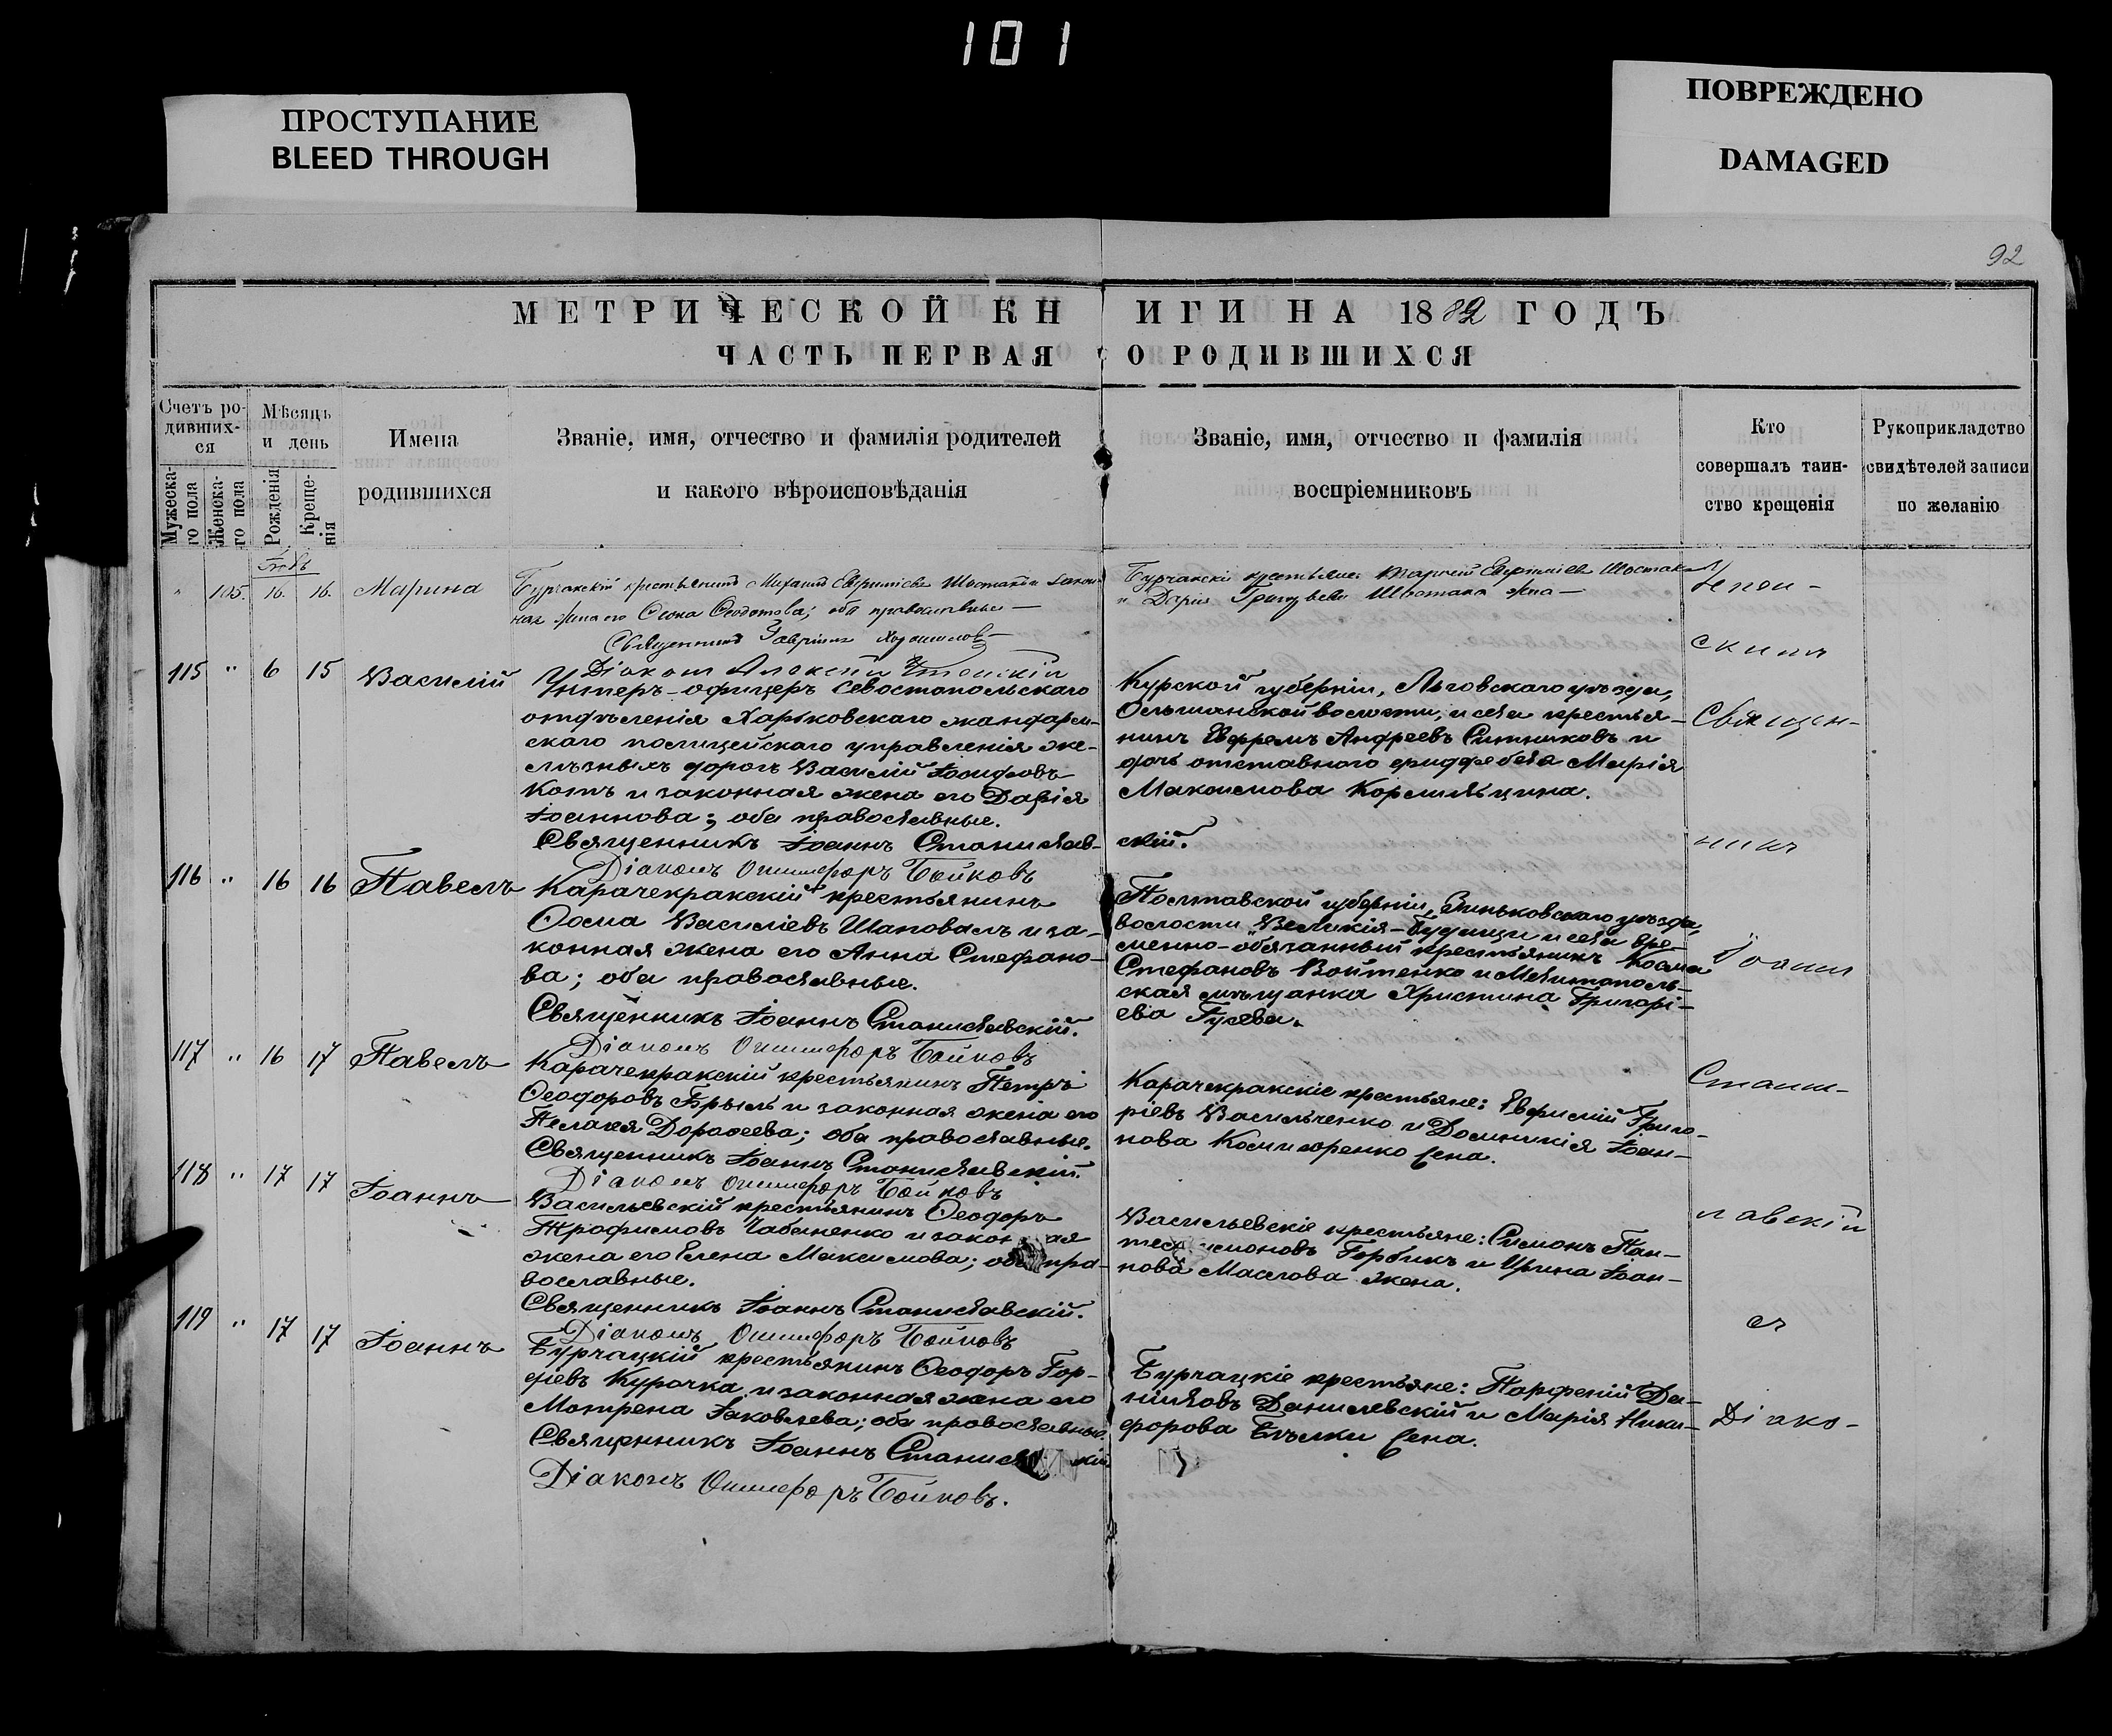 101
ПРОСТУПАНИЕ
BLEED THROUGH
ПОВРЕЖДЕНО
DAMAGED
92
МЕТРИЧЕСКОЙ КНИГИ НА 1882 ГОДЪ
ЧАСТЬ ПЕРВАЯ О РОДИВШИХСЯ
Счетъ ро-
дивших-
ся
Мужеска-
го пола
Женска-
го пола
Мѣсяцъ
и день
Рожденія
Креще-
нія
Имена
родившихся
Званіе, имя, отчество и фамилія родителей
и какого вѣроисповѣданія
Званіе, имя, отчество и фамилія
воспріемниковъ
Кто
совершалъ таин-
ство крещенія
Рукоприкладство
свидѣтелей записи
по желанію
" 105. 16. 16. Марина
Бурчакскій крестьянинъ Михаилъ Евфиміевъ Шостакъ и закон-
ная жена его Ѳеодотова; оба православные
Священникъ Гавріилъ
Діаконъ Алексѣй
Бурчакскіе крестьяне: Евфиміевъ Шостакъ
и Дарія Григорьева Шостака жена
115 " 6 15 Василій
Унтеръ-офицеръ Севостопольскаго
отдѣленія Харьковскаго жандарм-
скаго полицейскаго управленія же-
лѣзныхъ дорогъ Василій Іосифовъ
Котъ и законная жена его Дарія
Іоаннова; оба православные.
Священникъ Іоаннъ Станислав-
скій.
Діаконъ Онисифоръ Бойковъ
Курской губерніи, Льговскаго уѣзда,
Ольшанской волости, и села крестья-
нинъ Ефремъ Андреевъ Ситниковъ и
дочь отставного фидфебеля Марія
Максимова Кормильцина.
116 " 16 16 Павелъ
Карачекракскій крестьянинъ
Ѳома Василіевъ Шаповалъ и за-
конная жена его Анна Стефано-
ва; оба православные.
Священникъ Іоаннъ Станиславскій.
Діаконъ Онисифоръ Бойковъ
Полтавской губерніи, Зиньковскаго уѣзда,
волости „Великія-Будищи и села вре-
менно-обязанный крестьянинъ Косма
Стефановъ Войтенко и Мелитополь-
ская мѣщанка Христина Григорі-
ева Гусева.
117 " 16 17 Павелъ
Карачекракскій крестьянинъ Петръ
Ѳеодоровъ Брыль и законная жена его
Пелагея Дороѳеева; оба православные.
Священникъ Іоаннъ Станиславскій.
Діаконъ Онисифоръ Бойковъ
Карачекракскіе крестьяне: Евфимій Григо-
ріевъ Васильченко и Домникія Іоан-
нова
118 " 17 17 Іоаннъ
Васильевскій крестьянинъ Ѳеодоръ
Трофимовъ Чабаненко и закон ая
жена его Елена Максимова; оба пра-
вославные.
Священникъ Іоаннъ Станиславскій.
Діаконъ Онисифоръ Бойковъ
Васильевскіе крестьяне: Симонъ Пан-
те имоновъ Горбикъ и Ирина Іоан-
нова Маслова жена.
119 " 17 17 Іоаннъ
Бурчацкій крестьянинъ Ѳеодоръ Гор-
дѣевъ Курочка и законная жена его
Мотрена Іаковлева; оба православные
Священникъ Іоаннъ Станисл кій
Діаконъ Онисифоръ Бойковъ.
Бурчацкіе крестьяне: Парфеній Да-
ніиловъ Данилевскій и Марія Ники-
форова
Священ-
никъ
Іоаннъ
Станис-
лавскій
съ
Діако-